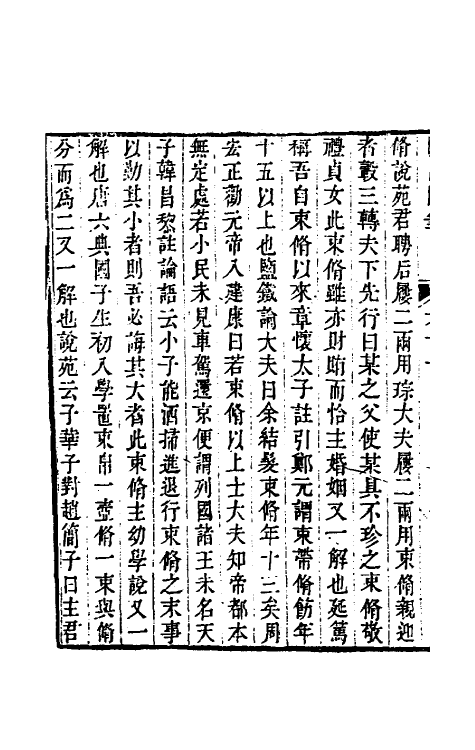 脩說苑君聘后屨二兩用琮大夫屨二兩用束脩親迎
者轂三轉夫下先行曰某之父使某具不珍之束脩敬
禮貞女此束脩雖亦財賄而恰主婚姻又一解也延篤
稱吾自束脩以來章懷太子註引鄭元謂束帶脩飭年
十五以上也鹽鐵論大夫曰余結髮束脩年十三矣周
宏正勸元帝入建康曰若束脩以上士大夫知帝都本
無定處若小民未見車駕還京便謂列國諸王未名天
子韓昌黎註論語云小子能洒掃進退行束脩之末事
以勤其小者則吾必誨其大者此束脩主幼學說又一
解也唐六典國子生初入學置束帛一壺脩一束與脩
分而爲二又一解也說苑云子華子對趙簡子曰主君